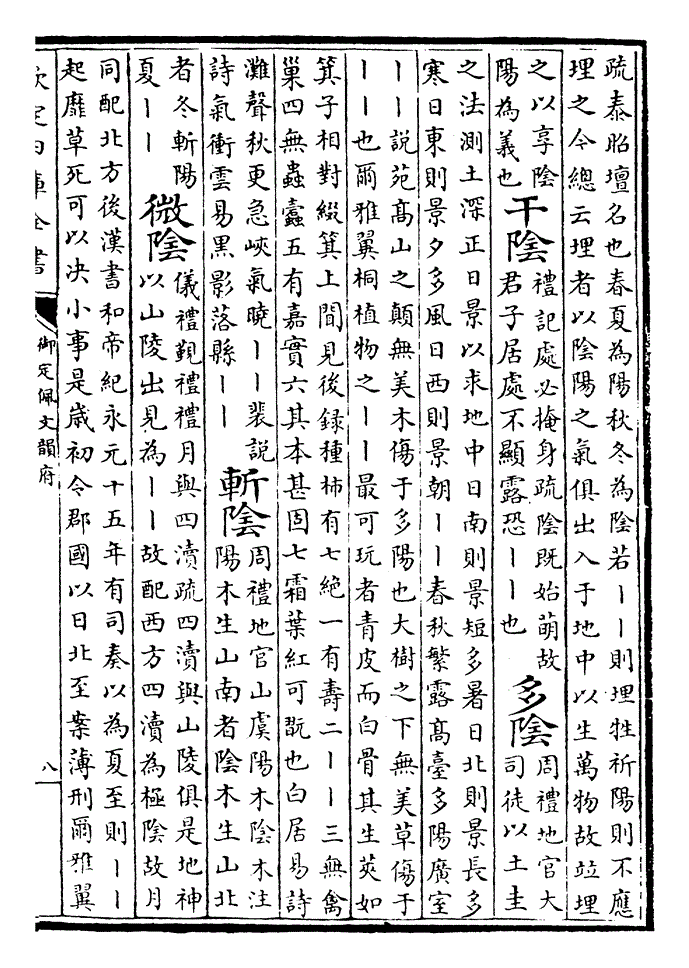 疏泰昭壇名也春夏為陽秋冬為陰若丨丨則埋牲祈陽則不應
埋之今總云埋者以陰陽之氣俱出入于地中以生萬物故竝埋
之以享陰
陽為義也
干陰
禮記處必掩身疏陰既始萌故
君子居處不顯露恐丨丨也
多陰
周禮地官大
司徒以土圭
之法測土深正日景以求地中日南則景短多暑日北則景長多
寒日東則景夕多風日西則景朝丨丨春秋繁露髙臺多陽廣室
丨丨説苑髙山之顛無美木傷于多陽也大樹之下無美草傷于
丨丨也爾雅翼桐植物之丨丨最可玩者青皮而白骨其生莢如
箕子相對綴箕上聞見後録種柿有七絶一有壽二丨丨三無禽
巢四無蟲蠧五有嘉實六其本甚固七霜葉紅可翫也白居易詩
灘聲秋更急峽氣曉丨丨裴説
詩氣衝雲易黑影落縣丨丨
斬陰
周禮地官山虞陽木陰木注
陽木生山南者陰木生山北
者冬斬陽
夏丨丨
微陰
儀禮覲禮禮月與四瀆疏四瀆與山陵俱是地神
以山陵出見為丨丨故配西方四瀆為極陰故月
同配北方後漢書和帝紀永元十五年有司奏以為夏至則丨丨
起靡草死可以决小事是歳初令郡國以日北至案薄刑爾雅翼
欽定四庫全書
御定佩文韻府
八